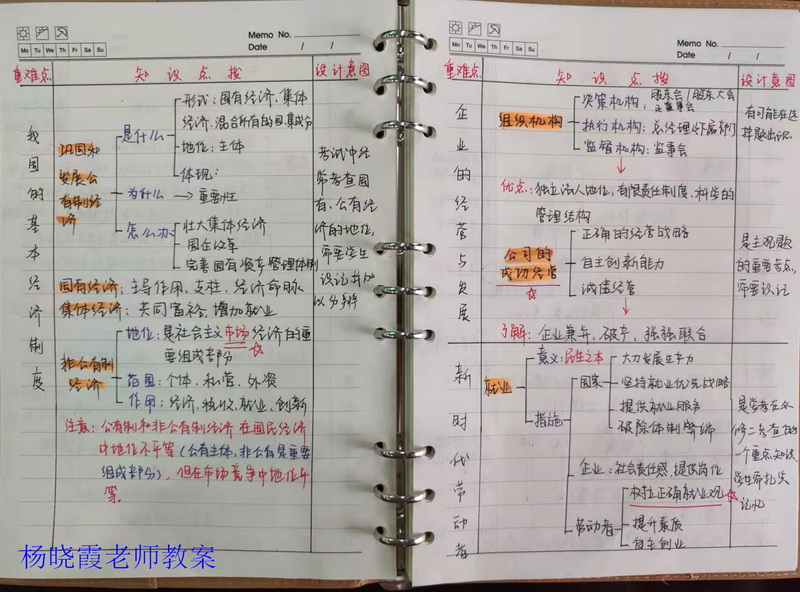 Memo No.
Mo Tu We Th Fr Sa Su
Date / /
重难点 知识点拨 设计意图
我国的基本经济制度
巩固和
发展公
有制经
济
是什么
形式：国有经济、集体
经济、混合所有的国、集成分
地位：主体
体现：
为什么 → 重要性
怎么办
壮大集体经济
国企改革
完善国有资产管理体制
国有经济：主导作用、支柱、经济命脉
集体经济：共同富裕、增加就业
非公有制
经济
地位：是社会主义市场经济的重
要组成部分 ☆
范围：个体、私营、外资
作用：经济、税收、就业、创新
注意：公有制和非公有制经济在国民经济
中地位不平等（公有主体，非公有是重要
组成部分），但在市场竞争中地位平
等。
考试中经
常考查国
有、公有经
济的地位，
需要学生
识记并加
以分辨
杨晓霞老师教案
Memo No.
Mo Tu We Th Fr Sa Su
Date / /
重难点 知识点拨 设计意图
企业的经营与发展
组织机构
决策机构：股东会/股东大会
董事会
执行机构：总经理/下属部门
监督机构：监事会
优点：独立法人地位，有限责任制度，科学的
管理结构
公司的
成功经营
☆
正确的经营战略
自主创新能力
诚信经营
了解：企业兼并、破产、强强联合
有可能在选
择题出现。
是主观题
的重要考点，
需要识记
新时代劳动者
就业
意义：民生之本
措施
国家
大力发展生产力
坚持就业优先战略
提供就业服务
破除体制弊端
企业：社会责任感，提供岗位
劳动者
树立正确就业观 ☆
提升素质
自主创业
是常考在必
修二考查的
一个重点知识
学生需扎实
记忆